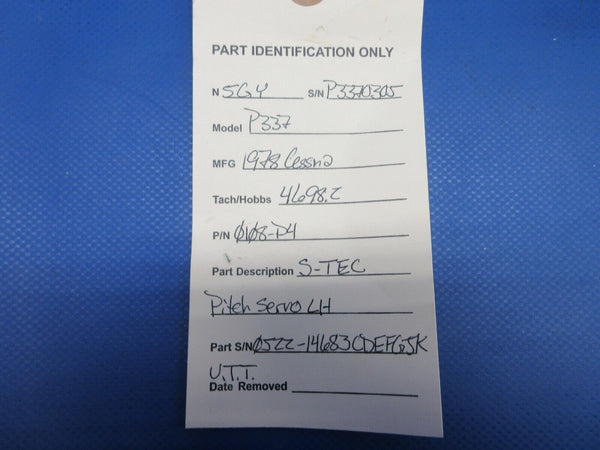 PART IDENTIFICATION ONLY
N 5GY S/N P3370305
Model P337
MFG 1978 Cessna
Tach/Hobbs 4698.2
P/N 0108-D4
Part Description S-TEC
Pitch Servo LH
Part S/N 0522-14683CDEFGJK
U.T.T.
Date Removed